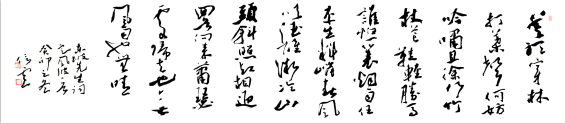 莫聽穿林
打葉聲何妨
吟嘯且徐行竹
杖芒鞋輕勝馬
誰怕一蓑烟雨任
平生料峭春風
吹酒醒微冷山
頭斜照却相迎
回首向來蕭瑟
處歸去也無
風雨也無晴
東坡先生詞
定風波
癸卯